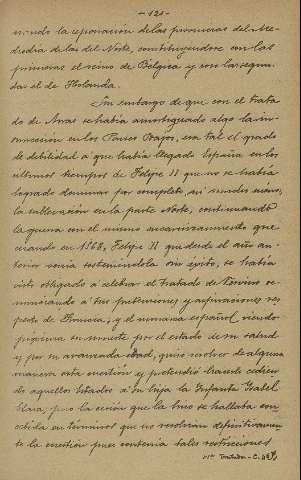 - 121 -
nando la separación de las provincias del Me-
diodía de las del Norte, constituyéndose con las
primeras el reino de Bélgica y con las segun-
das el de Holanda.
Sin embargo de que con el trata
do de Arras se había amortiguado algo la in-
surrección en los Países Bajos, era tal el grado
de debilidad a que había llegado España en los
últimos tiempos de Felipe II que no se había
logrado dominar por completo, ni mucho menos,
la sublevación en la parte Norte, continuando
la guerra con el mismo encarnizamiento que
cuando en 1568, Felipe II que desde el año an-
terior venía sosteniéndola sin éxito, se había
visto obligado a celebrar el tratado de Vervins re-
nunciando a sus pretensiones y aspiraciones res-
pecto de Francia; y el monarca español, viendo
próxima su muerte por el estado de su salud
y por su avanzada edad, quiso resolver de alguna
manera esta cuestión y pretendió hacerlo cedien-
do aquellos Estados a su hija la Infanta Isabel
Clara, pero la cesión que la hizo se hallaba con
cebida en términos que no resolvían definitivamen-
te la cuestión pues contenía tales restricciones